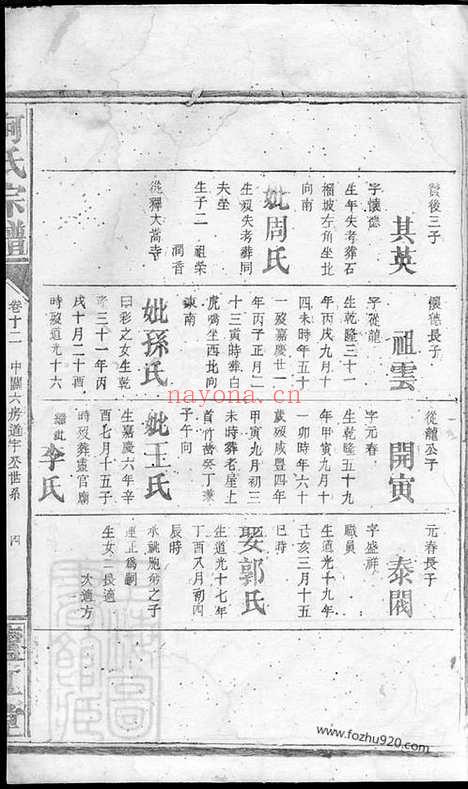 後三子
其英
字懷德
生年失考葬石
福坡左角坐北
向南
妣周氏
生歿失考葬同
夫坐
生子二 祖榮
潤香
從釋大嵩寺
懷德長子
祖雲
字從龍
生乾隆三十一
年丙戌九月十
四未時年五十
一歿嘉慶廿一
年丙子正月二
十三寅時葬白
虎嘴坐西北向
東南
妣孫氏
曰彩之女生乾
隆三十一年丙
戌十月二十酉
時歿道光十六
從龍公子
開寅
字元春
生乾隆五十九
年甲寅九月十
一卯時年六十
一歲歿咸豐四年
甲寅九月初三
未時葬老屋上
首竹 癸丁兼
子午向
妣王氏
生嘉慶六年辛
酉七月十五子
時歿葬靈官廟
繼妣李氏
元春長子
泰閣
字盛祥
職員
生道光十九年
己亥三月十五
巳時
娶郭氏
生道光十七年
丁酉八月初四
辰時
承祧胞弟之子
連正為嗣
生女二長適
次適方
何氏宗譜
卷十二
中關六房道宇公世系
四
廬江堂
nayona.cn
www.fozhu920.com